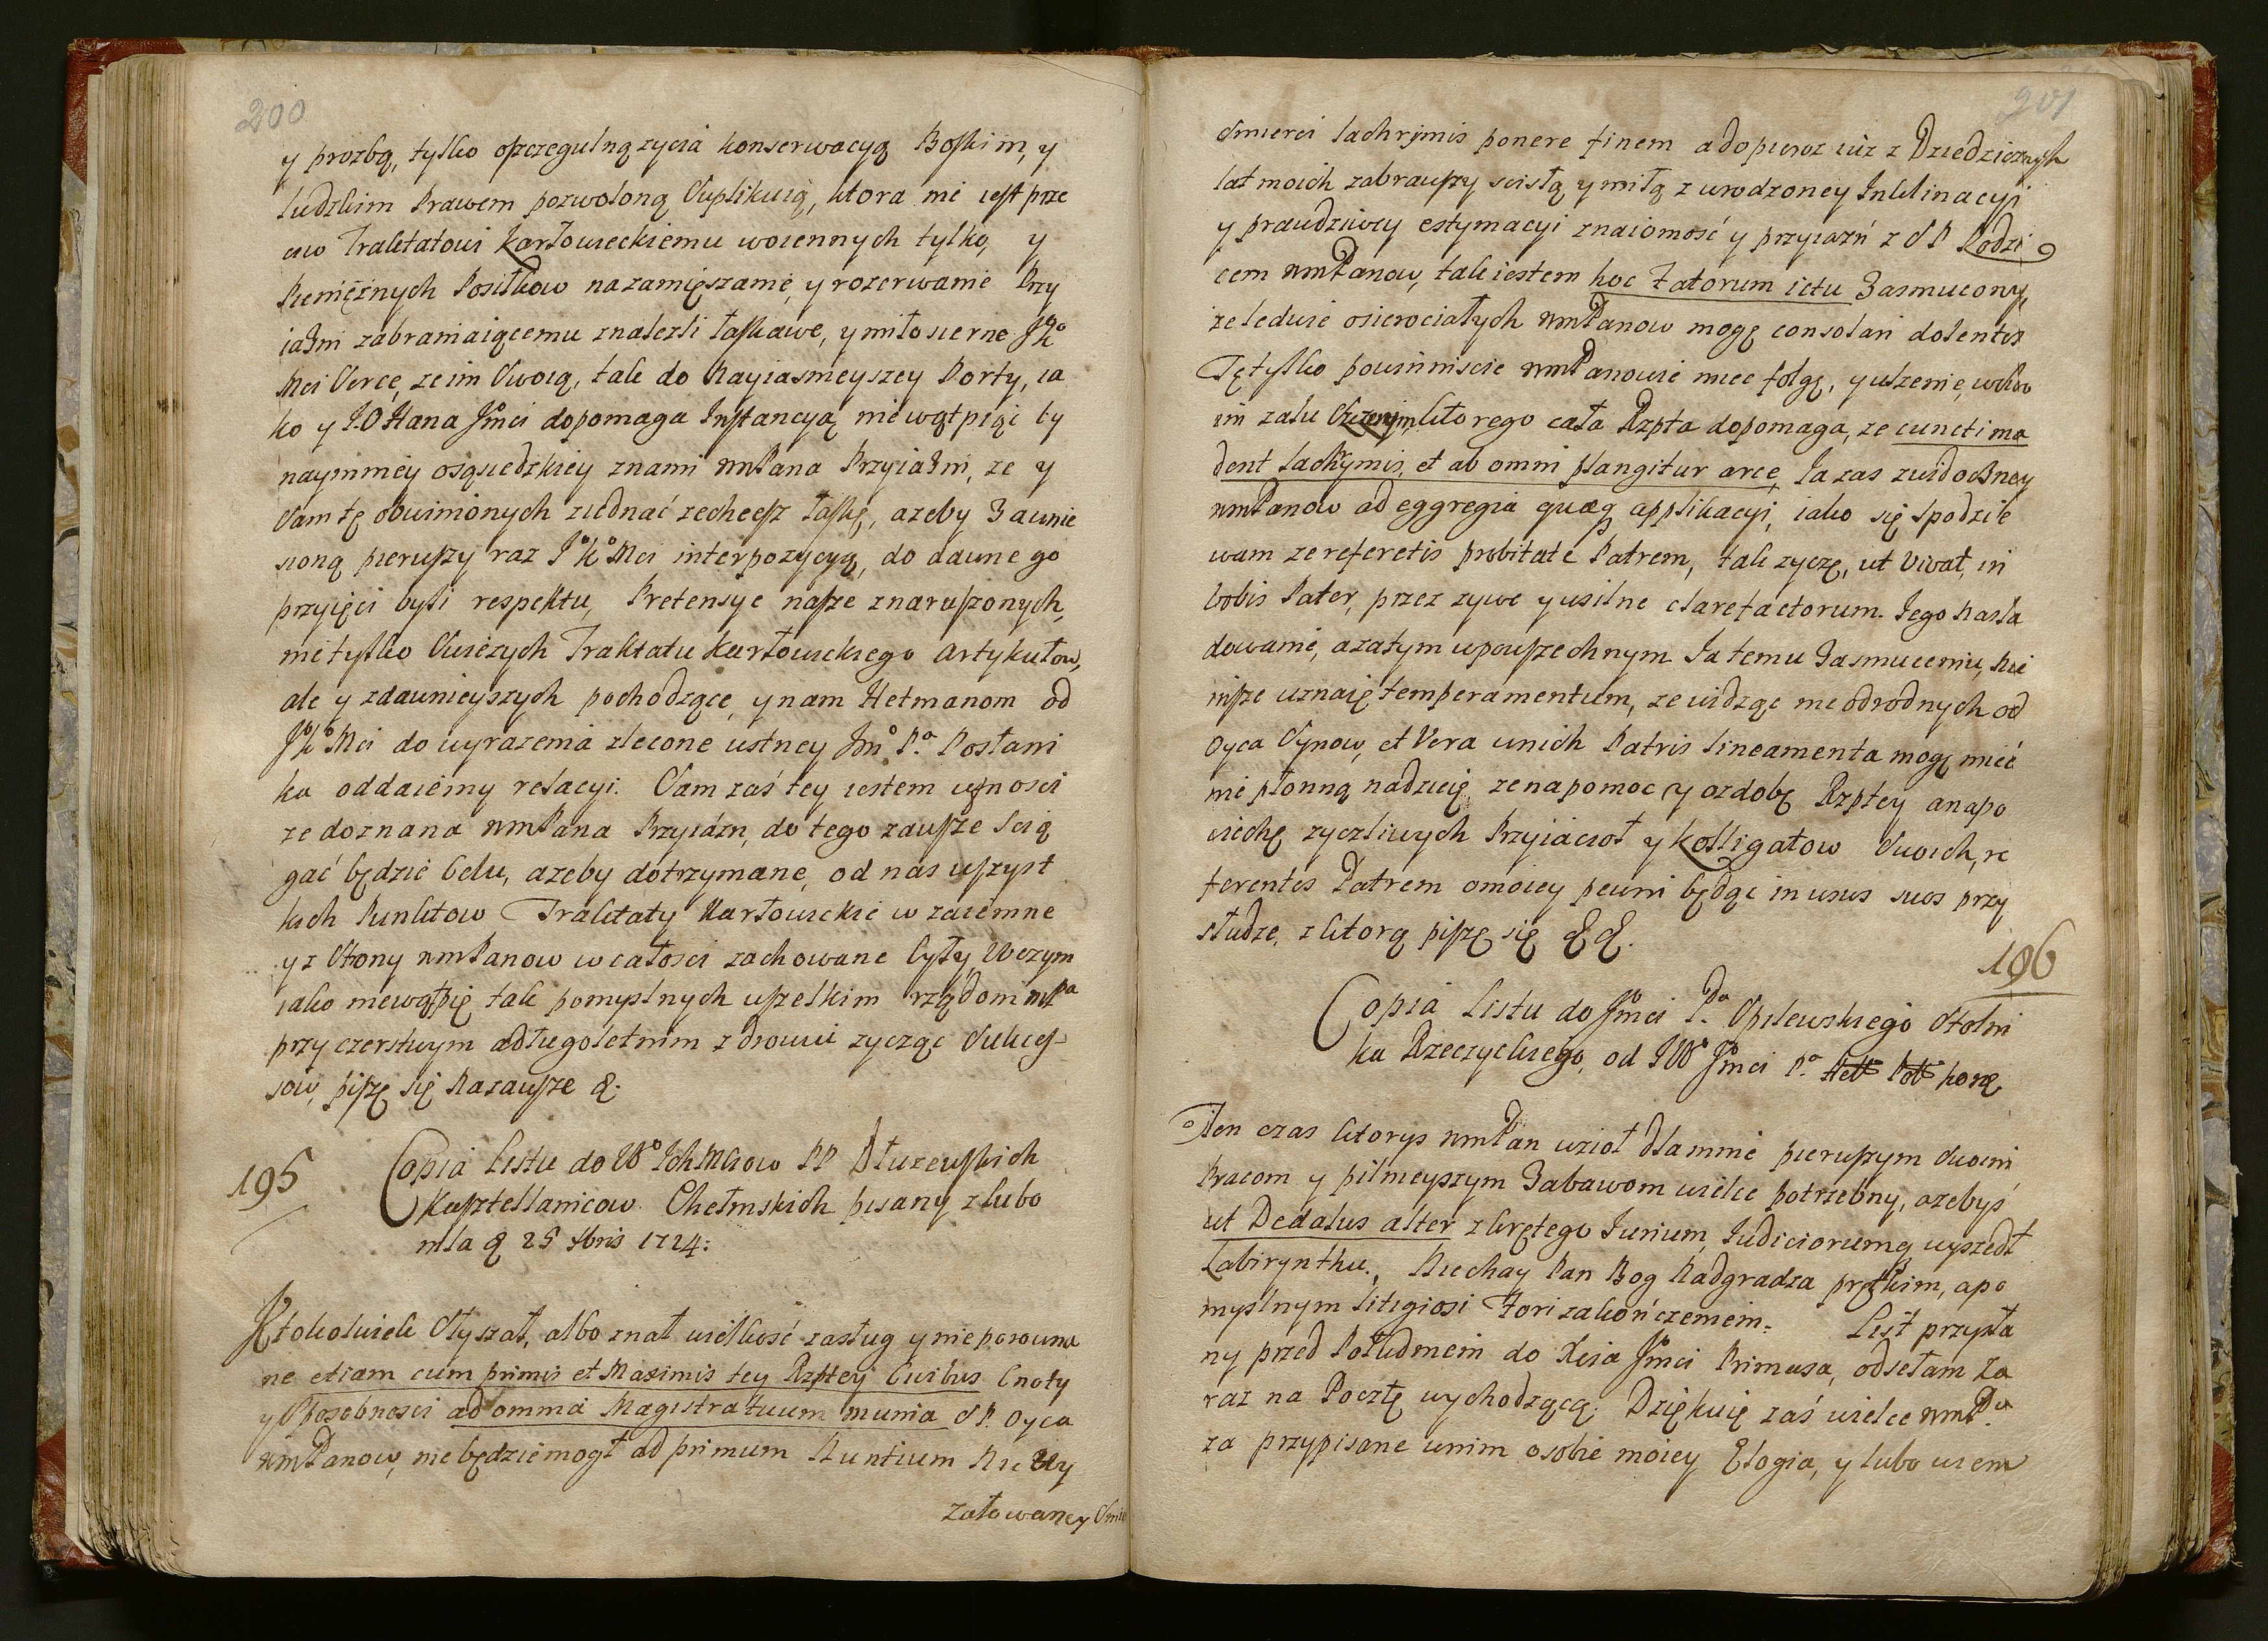 200
y prozbą, tylko szczegulną zycia konserwacyą Boskim, y
ludzkim Prawem pozwoloną Suplikuią, ktora nie iest prze
ciw Traktatowi Karłowieckiemu woiennych tylko, y
Pieniężnych Posiłkow na zamięszanie, y rozerwanie Przy
iaźni zabraniaiącemu znalezli łaskawe, y miłosierne JK
Mci Serce, ze im Swoią, tak do Nayiasnieyszey Porty, ia
ko y J.O Hana Jmci dopomaga Instancyą, nie wątpiąc by
naymniey o sąsiedzkiey z nami wmPana Przyiaźni, ze y
Sam tę obwinionych ziednać zechcesz łaskę, azeby Zaunie
sioną pierwszy raz JK Mci interpozycyą, do dawnego
przyięci byli respektu, Pretensye nasze z naruszonych,
nie tylko Swiezych Traktatu Karłowickiego Artykułow,
ale y z dawnieyszych pochodzące, y nam Hetmanom od
JK Mci do wyrazenia zlecone ustney Jmo Pa Posłani
ka oddaiemy relacyi. Sam zaś tey iestem ufnosci
ze doznana wmPana Przyiázn, do tego zawsze scią
gać będzie Celu, azeby dotrzymane, od nas wszyst
kich Punktow Traktaty Karłowickie w zaiemne
y z Strony wmPanow w całosci zachowane były, W czym
iako niewątpię tak pomyslnych wszelkim rządom wmPa
przy czerstwym a długoletnim zdrowiu zycząc Sukces-
sow, piszę się Nazawsze &.
195
Copia Listu do W Ich Mciow PP Dłuzewskich
Kasztellanicow Chełmskich pisany z Lubo
mla & 25 Xbris 1724:
Ktokolwiek Słyszał, albo znał wielkość zasług y nieporowna
ne etiam cum primis et Maximis tey Rzptey Civibus Cnoty
y Sposobnosci ad omnia Magistratuum munia S P. Oyca
wmPanow, nie będzie mogł ad primum Nuntium Nie Wy
załowaney Smie
201
Smierci lachrymis ponere finem a dopieroz iuz z Dziedzicznych
lat moich zabrawszy scisłą y miłą z urodzoney Inklinacyi
y prawdziwey estymacyi znaiomość y przyiaźń z S P Rodzi
cem wmPanow, tak iestem hoc fatorum ictu Zasmucony,
ze ledwie osierociałych wmPanow mogę consolari dolentes
Tę tylko powinniscie wmPanowie miec folgę, y ulzenie, w kro
im zalu ktorego cała Rzpta dopomaga, ze cuncti ma
dent lachrymis, et ab omni plangitur arce, Ja zas z widoczney
wmPanow ad eggregia quæq applikacyi, iako się spodzie
wam ze referetis probitate Patrem, tak zyczę, ut vivat in
vobis Pater, przez zywe y usilne clare factorum Jego nasla
dowanie, a zatym w powszechnym Ja temu Zasmuceniu, nie
insze uznaię temperamentum, ze widząc nieodrodnych od
Oyca Synow, et Vera w nich Patris lineamenta mogę mieć
nie płonną nadzieię, ze na pomoc y ozdobę Rzptey a na po
ciechę zyczliwych Przyiacioł y Kolligatow Swoich, re
ferentes Patrem o moiey pewni będąc in usus suos przy
słudze, z ktorą piszę się &&.
196
Copia Listu do Jmci Pa Opilewskiego Stolni
ka Rzeczyckiego, od JW Jmci Pa Hett Pott Korę.
Ten czas ktorys wmPan wzioł dla mnie pierwszym Swoim
Pracom y pilnieyszym Zabawom wielce potrzebny, azebyś
ut Dedalus alter z krętego Iurium, Iudiciorumq wyszedł
Labirynthu., Niechay Pan Bog Nadgradza prętkim, a po
myslnym litigiosi Fori zakończeniem. List przysła
ny przed Południem do Xcia Jmci Primasa, odsełam za
raz na Pocztę wychodzącą. Dziękuię zaś wielce wmPa
za przypisane w nim osobie moiey Elogia, y lubo wiem